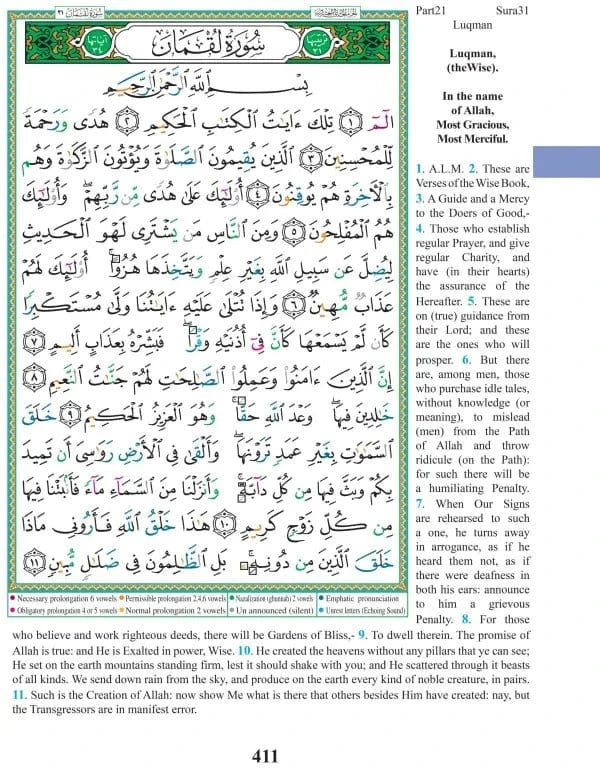 سُورَةُ لُقْمَان ٣١
Part21 Sura31
Luqman
ترتيبها ٣١
سُورَةُ لُقْمَان
آياتها ٣٤
بِسْمِ اللَّهِ الرَّحْمَٰنِ الرَّحِيمِ
الٓمٓ ١ تِلْكَ ءَايَٰتُ ٱلْكِتَٰبِ ٱلْحَكِيمِ ٢ هُدًى وَرَحْمَةً
لِّلْمُحْسِنِينَ ٣ ٱلَّذِينَ يُقِيمُونَ ٱلصَّلَوٰةَ وَيُؤْتُونَ ٱلزَّكَوٰةَ وَهُم
بِٱلْءَاخِرَةِ هُمْ يُوقِنُونَ ٤ أُو۟لَٰٓئِكَ عَلَىٰ هُدًى مِّن رَّبِّهِمْ ۖ وَأُو۟لَٰٓئِكَ
هُمُ ٱلْمُفْلِحُونَ ٥ وَمِنَ ٱلنَّاسِ مَن يَشْتَرِى لَهْوَ ٱلْحَدِيثِ
لِيُضِلَّ عَن سَبِيلِ ٱللَّهِ بِغَيْرِ عِلْمٍ وَيَتَّخِذَهَا هُزُوًا ۚ أُو۟لَٰٓئِكَ لَهُمْ
عَذَابٌ مُّهِينٌ ٦ وَإِذَا تُتْلَىٰ عَلَيْهِ ءَايَٰتُنَا وَلَّىٰ مُسْتَكْبِرًا
كَأَن لَّمْ يَسْمَعْهَا كَأَنَّ فِىٓ أُذُنَيْهِ وَقْرًا ۖ فَبَشِّرْهُ بِعَذَابٍ أَلِيمٍ ٧
إِنَّ ٱلَّذِينَ ءَامَنُوا۟ وَعَمِلُوا۟ ٱلصَّٰلِحَٰتِ لَهُمْ جَنَّٰتُ ٱلنَّعِيمِ ٨
خَٰلِدِينَ فِيهَا ۖ وَعْدَ ٱللَّهِ حَقًّا ۚ وَهُوَ ٱلْعَزِيزُ ٱلْحَكِيمُ ٩ خَلَقَ
ٱلسَّمَٰوَٰتِ بِغَيْرِ عَمَدٍ تَرَوْنَهَا ۖ وَأَلْقَىٰ فِى ٱلْأَرْضِ رَوَٰسِىَ أَن تَمِيدَ
بِكُمْ وَبَثَّ فِيهَا مِن كُلِّ دَآبَّةٍ ۚ وَأَنزَلْنَا مِنَ ٱلسَّمَآءِ مَآءً فَأَنۢبَتْنَا فِيهَا
مِن كُلِّ زَوْجٍ كَرِيمٍ ١٠ هَٰذَا خَلْقُ ٱللَّهِ فَأَرُونِى مَاذَا
خَلَقَ ٱلَّذِينَ مِن دُونِهِۦ ۚ بَلِ ٱلظَّٰلِمُونَ فِى ضَلَٰلٍ مُّبِينٍ ١١
Necessary prolongation 6 vowels Permissible prolongation 2,4,6 vowels Nazalization (ghunnah) 2 vowels Emphatic pronunciation
Obligatory prolongation 4 or 5 vowels Normal prolongation 2 vowels Un announced (silent) Unrest letters (Echoing Sound)
Luqman,
(theWise).
In the name
of Allah,
Most Gracious,
Most Merciful.
1. A.L.M. 2. These are
Verses of the Wise Book,
3. A Guide and a Mercy
to the Doers of Good,-
4. Those who establish
regular Prayer, and give
regular Charity, and
have (in their hearts)
the assurance of the
Hereafter. 5. These are
on (true) guidance from
their Lord; and these
are the ones who will
prosper. 6. But there
are, among men, those
who purchase idle tales,
without knowledge (or
meaning), to mislead
(men) from the Path
of Allah and throw
ridicule (on the Path):
for such there will be
a humiliating Penalty.
7. When Our Signs
are rehearsed to such
a one, he turns away
in arrogance, as if he
heard them not, as if
there were deafness in
both his ears: announce
to him a grievous
Penalty. 8. For those
who believe and work righteous deeds, there will be Gardens of Bliss,- 9. To dwell therein. The promise of
Allah is true: and He is Exalted in power, Wise. 10. He created the heavens without any pillars that ye can see;
He set on the earth mountains standing firm, lest it should shake with you; and He scattered through it beasts
of all kinds. We send down rain from the sky, and produce on the earth every kind of noble creature, in pairs.
11. Such is the Creation of Allah: now show Me what is there that others besides Him have created: nay, but
the Transgressors are in manifest error.
411